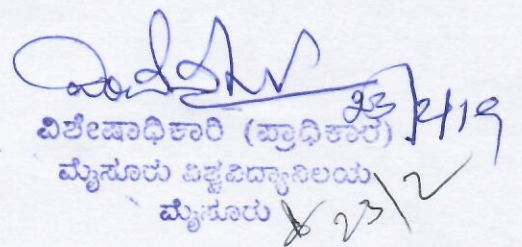 23/2/19
ವಿಶೇಷಾಧಿಕಾರಿ (ಪ್ರಾಧಿಕಾರ)
ಮೈಸೂರು ವಿಶ್ವವಿದ್ಯಾನಿಲಯ
ಮೈಸೂರು 23/2